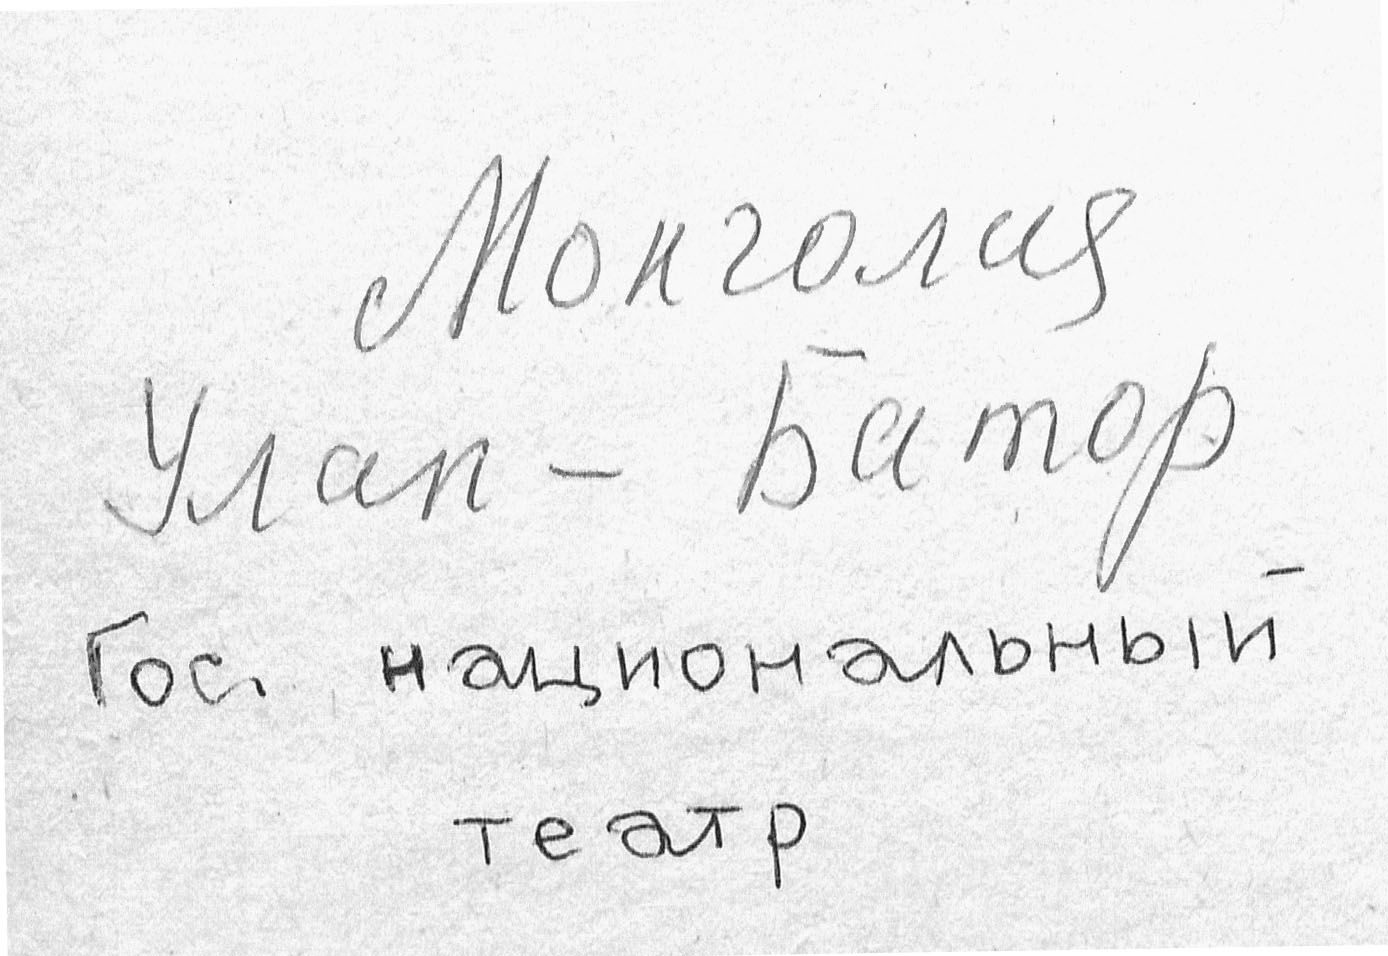 Монголия
Улан - Батор
Гос. национальный
театр